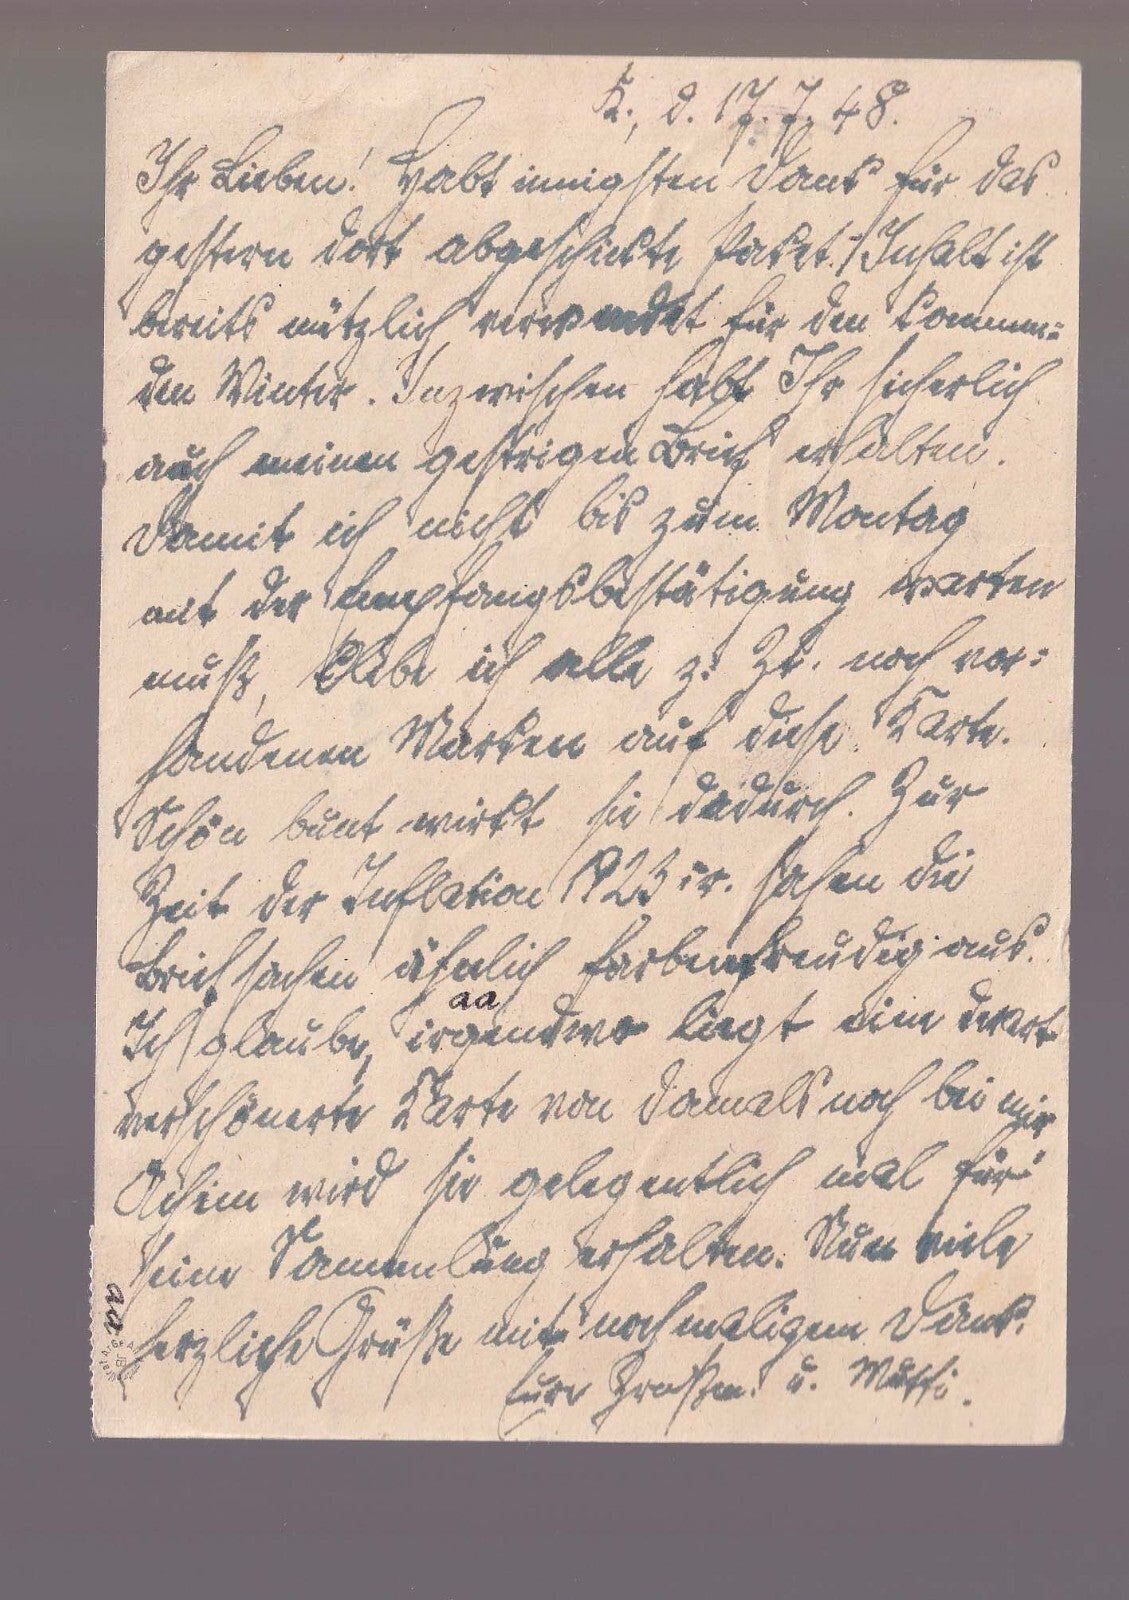 K., d. 17.7.48.
Ihr Lieben! Habt innigsten Dank für das
gestern dort abgeschickte Paket. Inhalt ist
bereits nützlich verwendet für den kommen=
den Winter. Inzwischen habt Ihr sicherlich
auch meinen gestrigen Brief erhalten.
Damit ich nicht bis zum Montag
mit der Empfangsbestätigung warten
muß, klebe ich alle z. Zt. noch vor=
handenen Marken auf diese Karte.
Schön bunt wirkt sie dadurch. Zur
Zeit der Inflation 1923 sahen die
Briefsachen ähnlich farbenfreudig aus.
aa
Ich glaube, irgendwo liegt eine derart
verschönerte Karte von damals noch bei mir
Achim wird sie gelegentlich mal für
seine Sammlung erhalten. Nun viele
herzliche Grüße mit nochmaligem Dank.
Eure Großm. u. Mutti.
aa